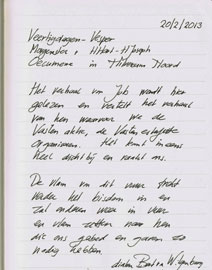 20/2/2013
Veertigdagen-Vesper
Oecumene in Hilversum Noord
Het verhaal van Job wordt hier
gelezen en vertelt het verhaal
van hen waarvoor we de
Vasten aktie, de Vasten estafette
organiseren. Het komt ineens
heel dichtbij en raakt ons.
De vlam van dit vuur trekt
verder het bisdom in en
zal anderen weer in vuur
en vlam zetten naar hen
die ons gebed en gaven zo
nodig hebben.
diaken